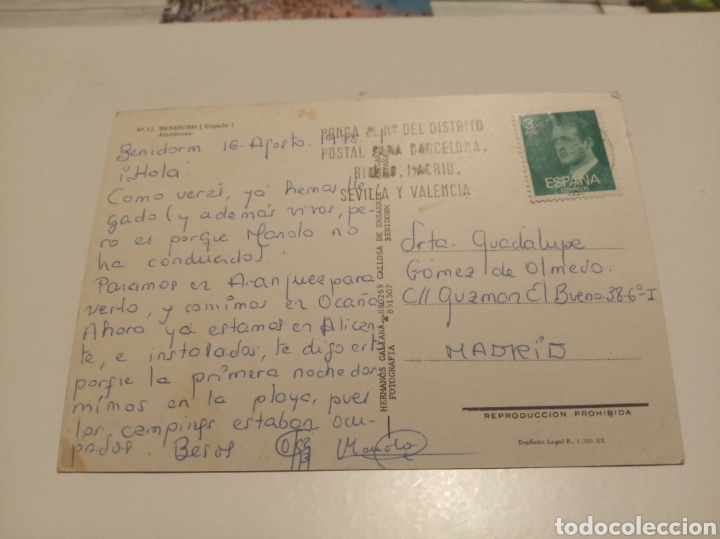 Nº 12 BENIDORM (España)
Atardecer
Benidorm 16-Agosto-1978
¡Hola!
Como verás, ya hemos lle-
gado (y además vivos, pe-
ro es porque Manolo no
ha conducido).
Paramos en Aranjuez para
verlo, y comimos en Ocaña
Ahora ya estamos en Alican-
te, e instalados, te digo esto
porque la primera noche dor-
mimos en la playa, pues
los campings estaban ocu-
pados. Besos
Manolo
PONGA EL Nº DEL DISTRITO
POSTAL PARA BARCELONA,
BILBAO, MADRID,
SEVILLA Y VALENCIA
3
ESPAÑA
CORREOS
HERMANOS GALIANA
CALLOSA DE ENSARRIÁ
FOTOGRAFIA 851507 BENIDORM
Srta. Guadalupe
Gómez de Olmedo.
C/ Guzman El Bueno-38-6º-I
MADRID
REPRODUCCION PROHIBIDA
Depósito Legal B.
todocoleccion